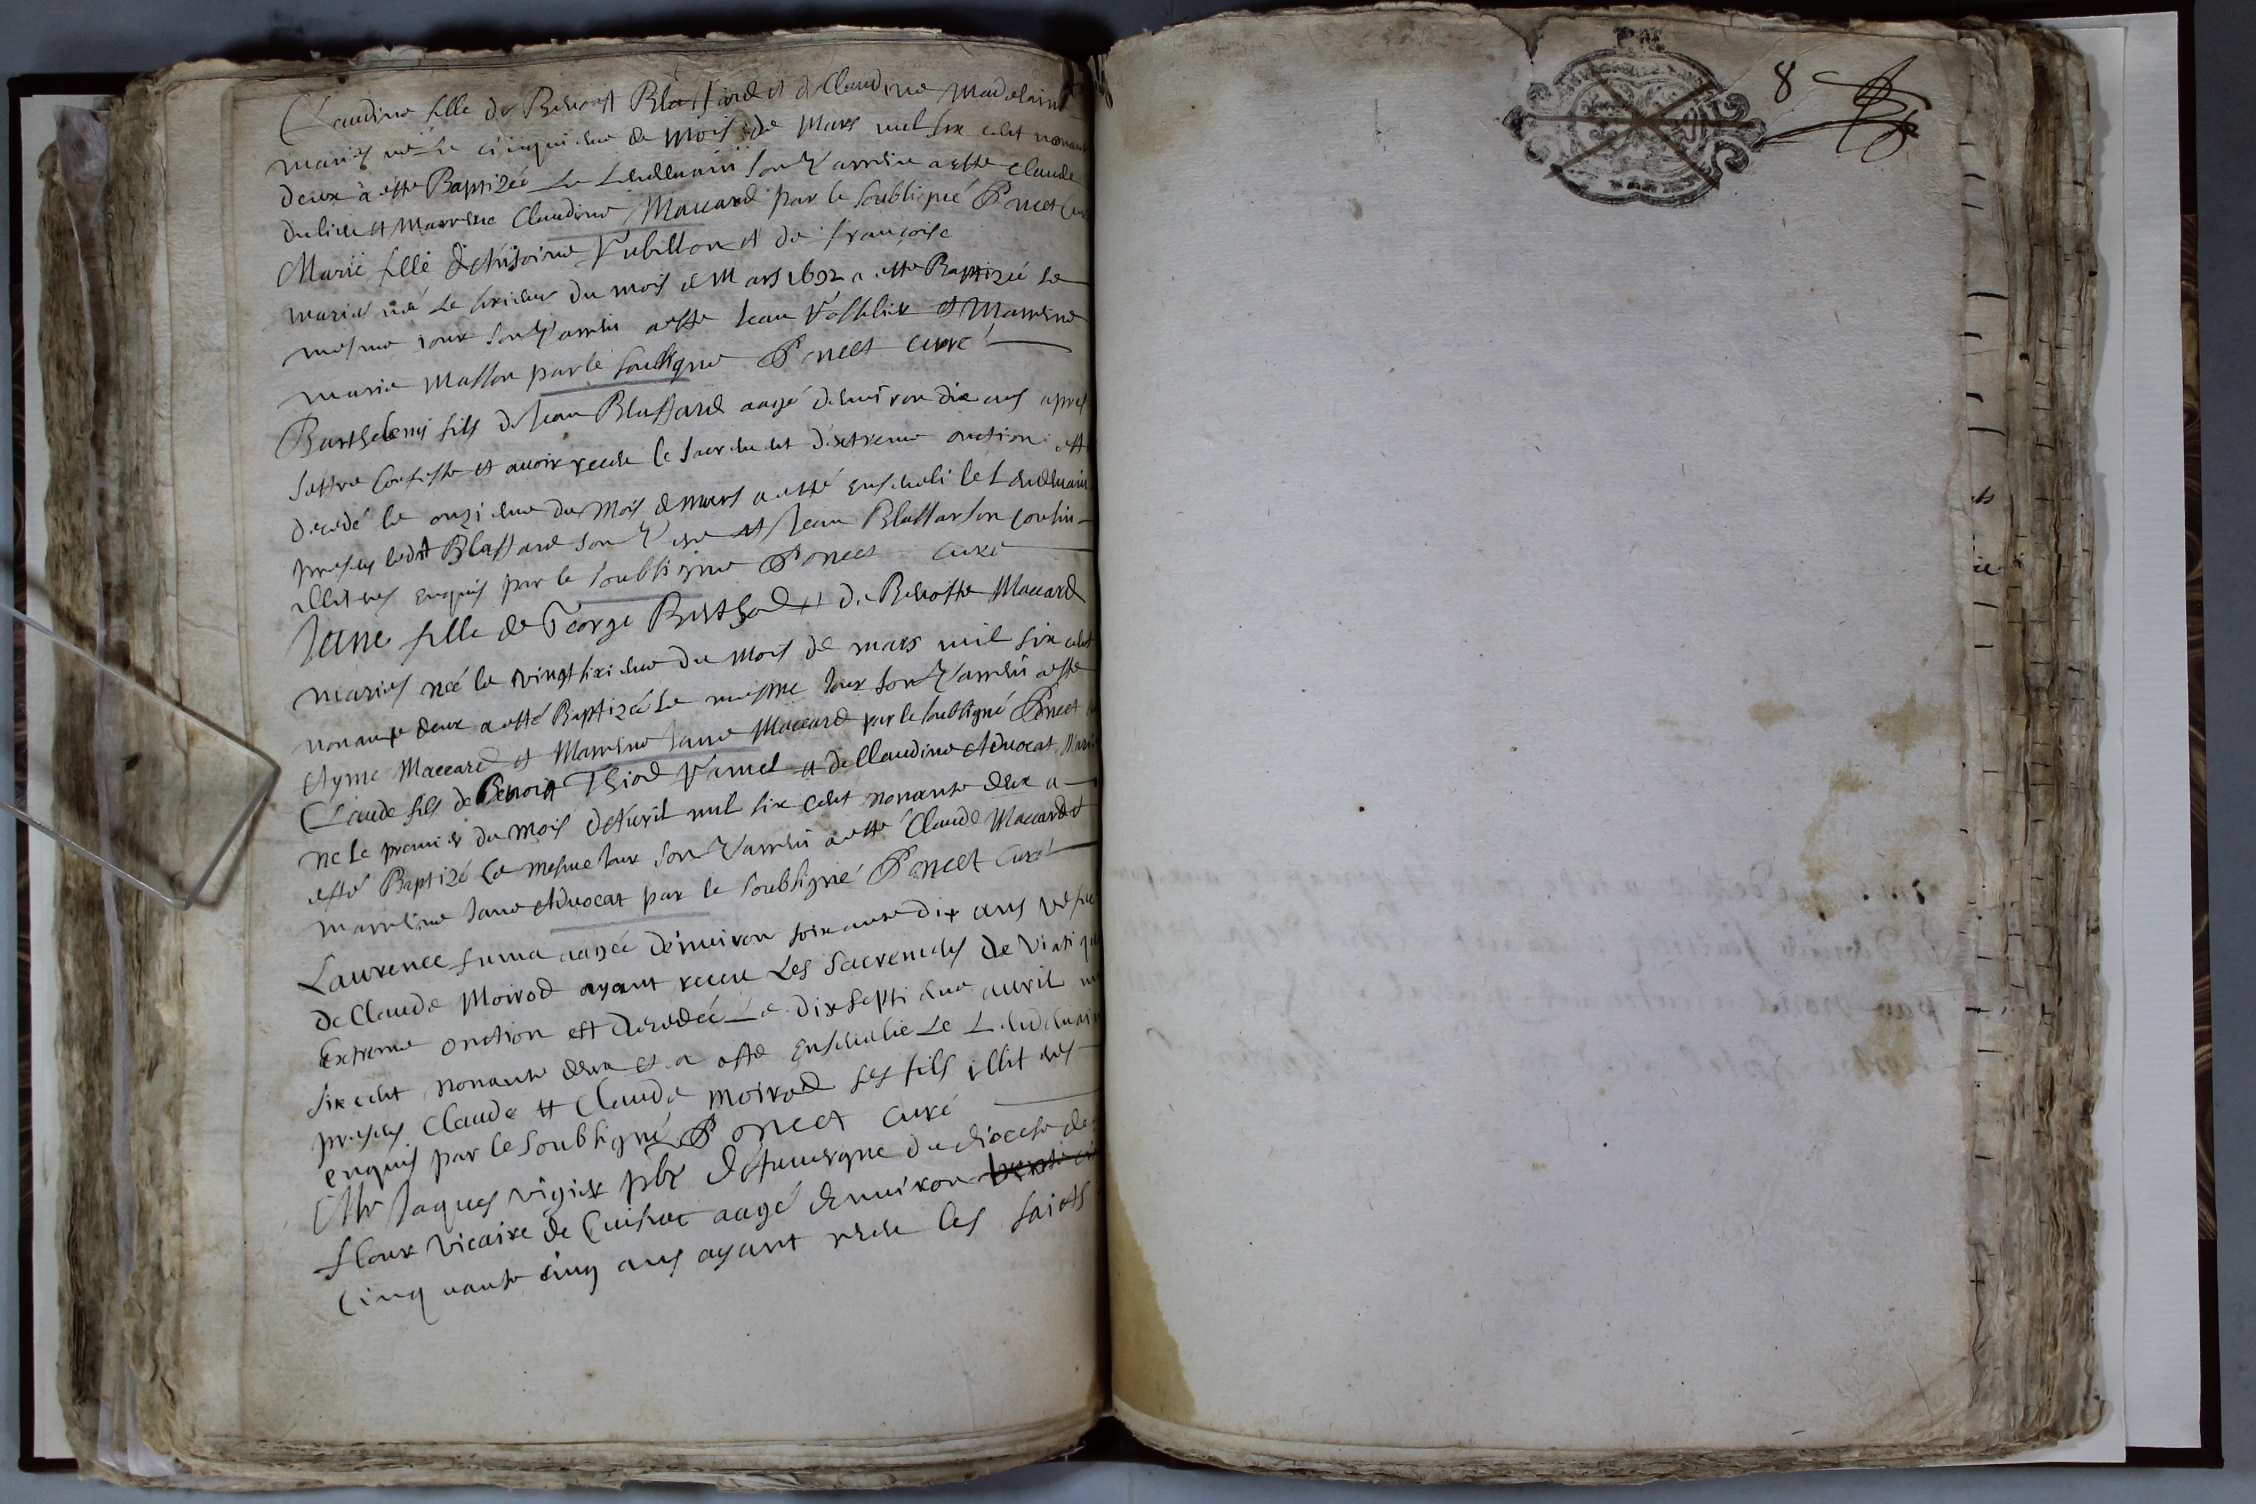 Claudine fille de Benoist Blaffard et de Claudine Madelaine
mariés née le cinquieme de mois de Mars mil six cent nonante
deux à esté Baptizée Le Lendemain son Parrein a esté Claude
Dulieu et Marreine Claudine Maccard par le soubsigné Poncet Curé
Marie fille d'Anthoine Vubillon et de françoise
mariés née Le sixieme du mois de Mars 1692 a esté Baptizée Le
mesme jour son Parrein a esté Jean et Marreine
marie Masson par le soubsigné Poncet curé
Barthelemy fils de Jean Blaffard aagé d'environ dix ans apres
s'estre confessé et avoir receu le Sacrement d'extreme onction est
decedé le onzieme du Mois de mars a esté enseveli le Lendemain
presens ledit Blaffard son Pere et Jean Blaffar son cousin
illiterés enquis par le soubsigné Poncet curé
Jeane fille de George Berthod et de Benoiste Maccard
mariés née le vingt sixieme du Mois de mars mil six cent
nonante deux a esté Baptizée Le mesme Jour son Parrein a esté
Ayme Maccard et Marreine Jane Maccard par le soubsigné Poncet
Claude fils de Benoist Thiod Vamel et de Claudine Advocat Mariés
ne Le premier du Mois d'Avril mil six cent nonante deux a
esté Baptizé Le mesme Jour son Parrein a esté Claude Maccard et
marreine Jane Advocat par le soubsigné Poncet Curé
Laurence aagée d'environ soixante dix ans vefve
de Claude Moirod ayant receu Les sacremens de Viatique
Extreme onction est decedée Le dixseptieme avril mil
six cent nonante deux et a esté ensevelie Le Lendemain
presens Claude et Claude moirod ses fils illiterés
enquis par le soubsigné Poncet curé
Mr Jaques vigier pbr d'Auvergne du diocese de
flour Vicaire de Cuisiat aagé d'environ
Cinquante cinq ans ayant receu les saicts
8